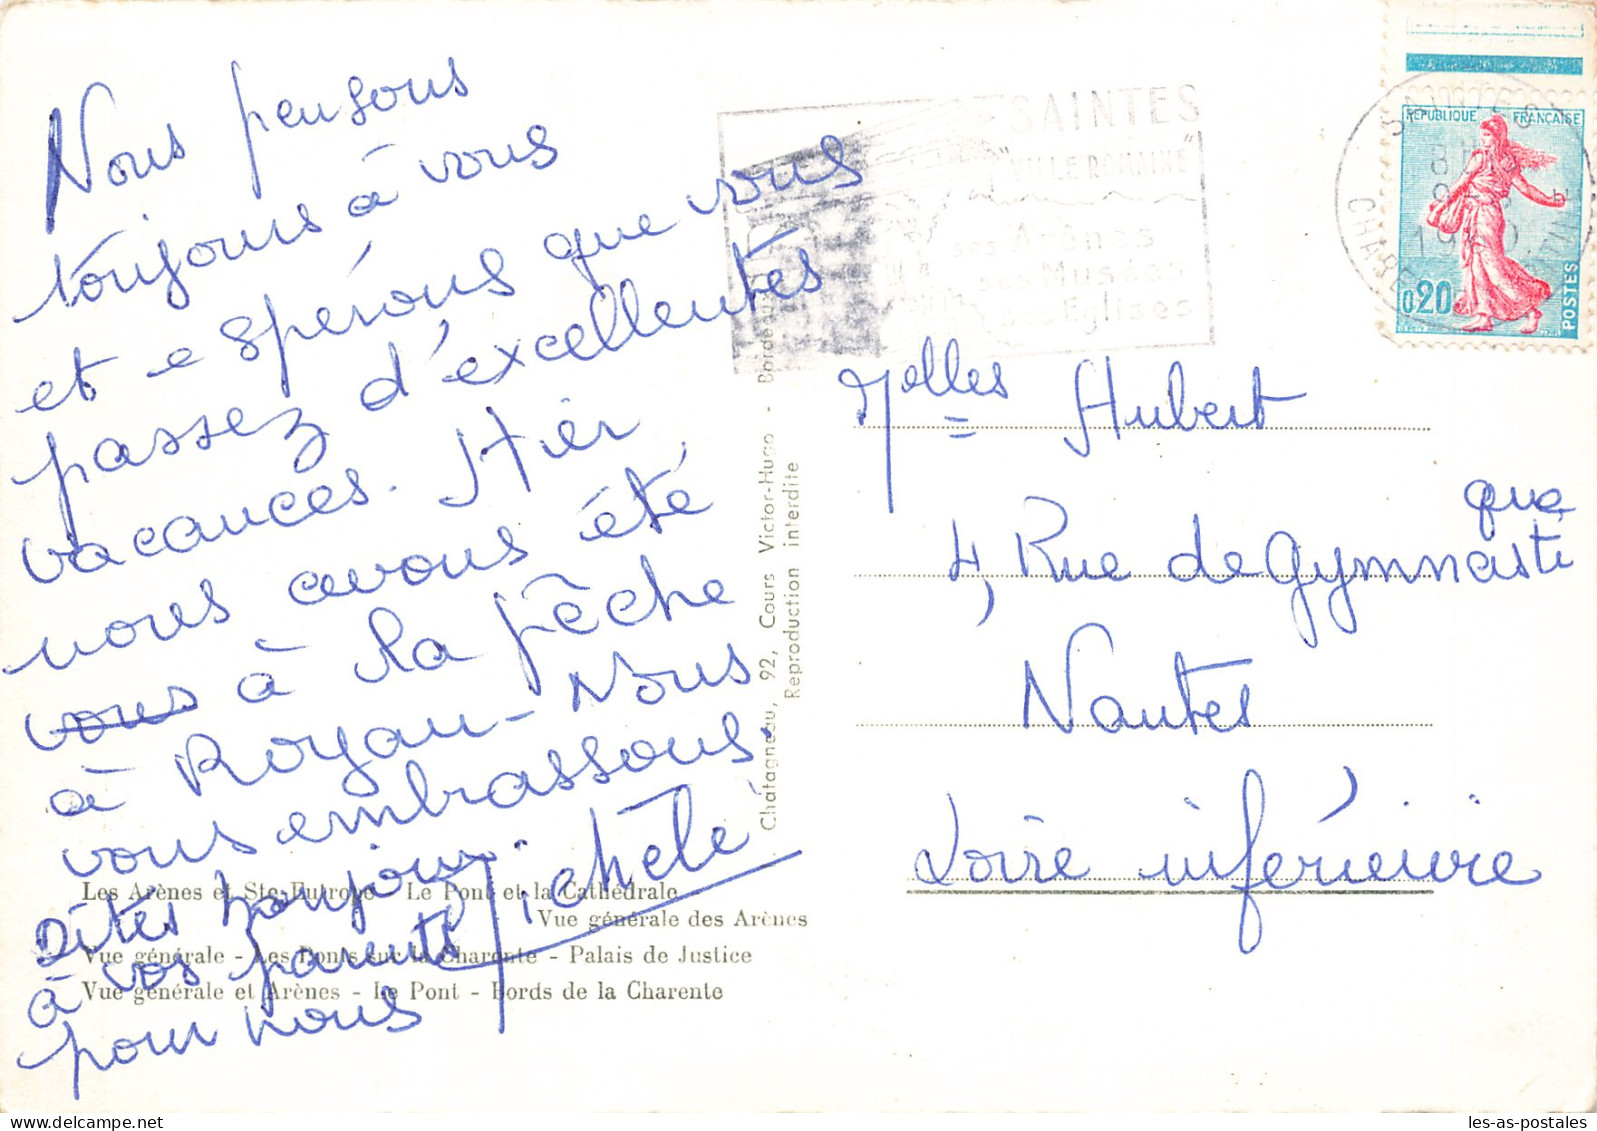 Nous pensons
toujours à vous
et espérons que vous
passez d'excellentes
vacances. Hier
nous avons été
vous à la pêche
à Royan - Nous
vous embrassons.
Dites bonjour
à vos parents
pour nous
Michele
Melles Hubert
4, Rue de Gymnastique
Nantes
Loire inférieure
SAINTES
"VILLE ROMAINE"
ses Arènes
ses Musées
ses Eglises
REPUBLIQUE FRANCAISE
0,20
POSTES
Chatagneau, 92, Cours Victor-Hugo - Bordeaux
Reproduction interdite
Les Arènes et Ste-Eutrope - Le Pont et la Cathédrale
Vue générale des Arènes
Vue générale - Les Ponts sur la Charente - Palais de Justice
Vue générale et Arènes - Le Pont - Bords de la Charente
les-as-postales